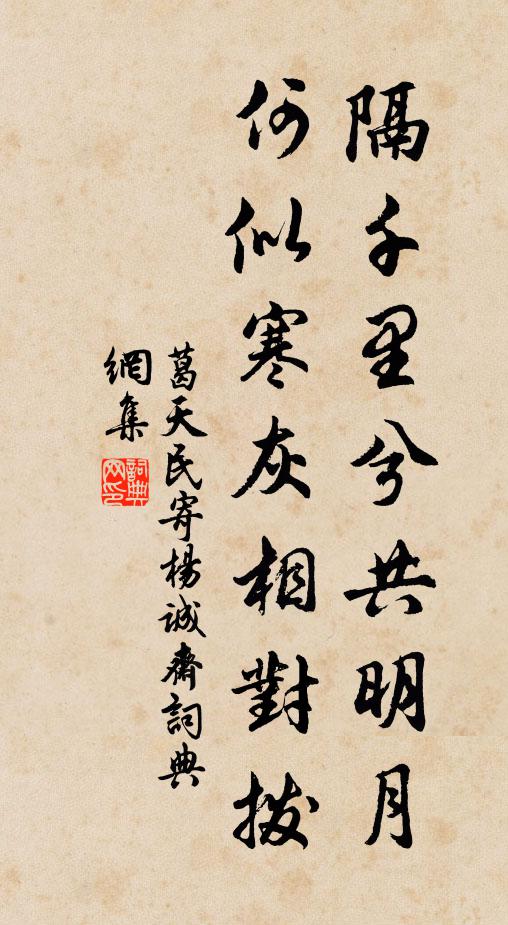 隔千里兮共明月
何似寒灰相對撥
葛天民寄楊誠齋詞典
網集
詞典
网印